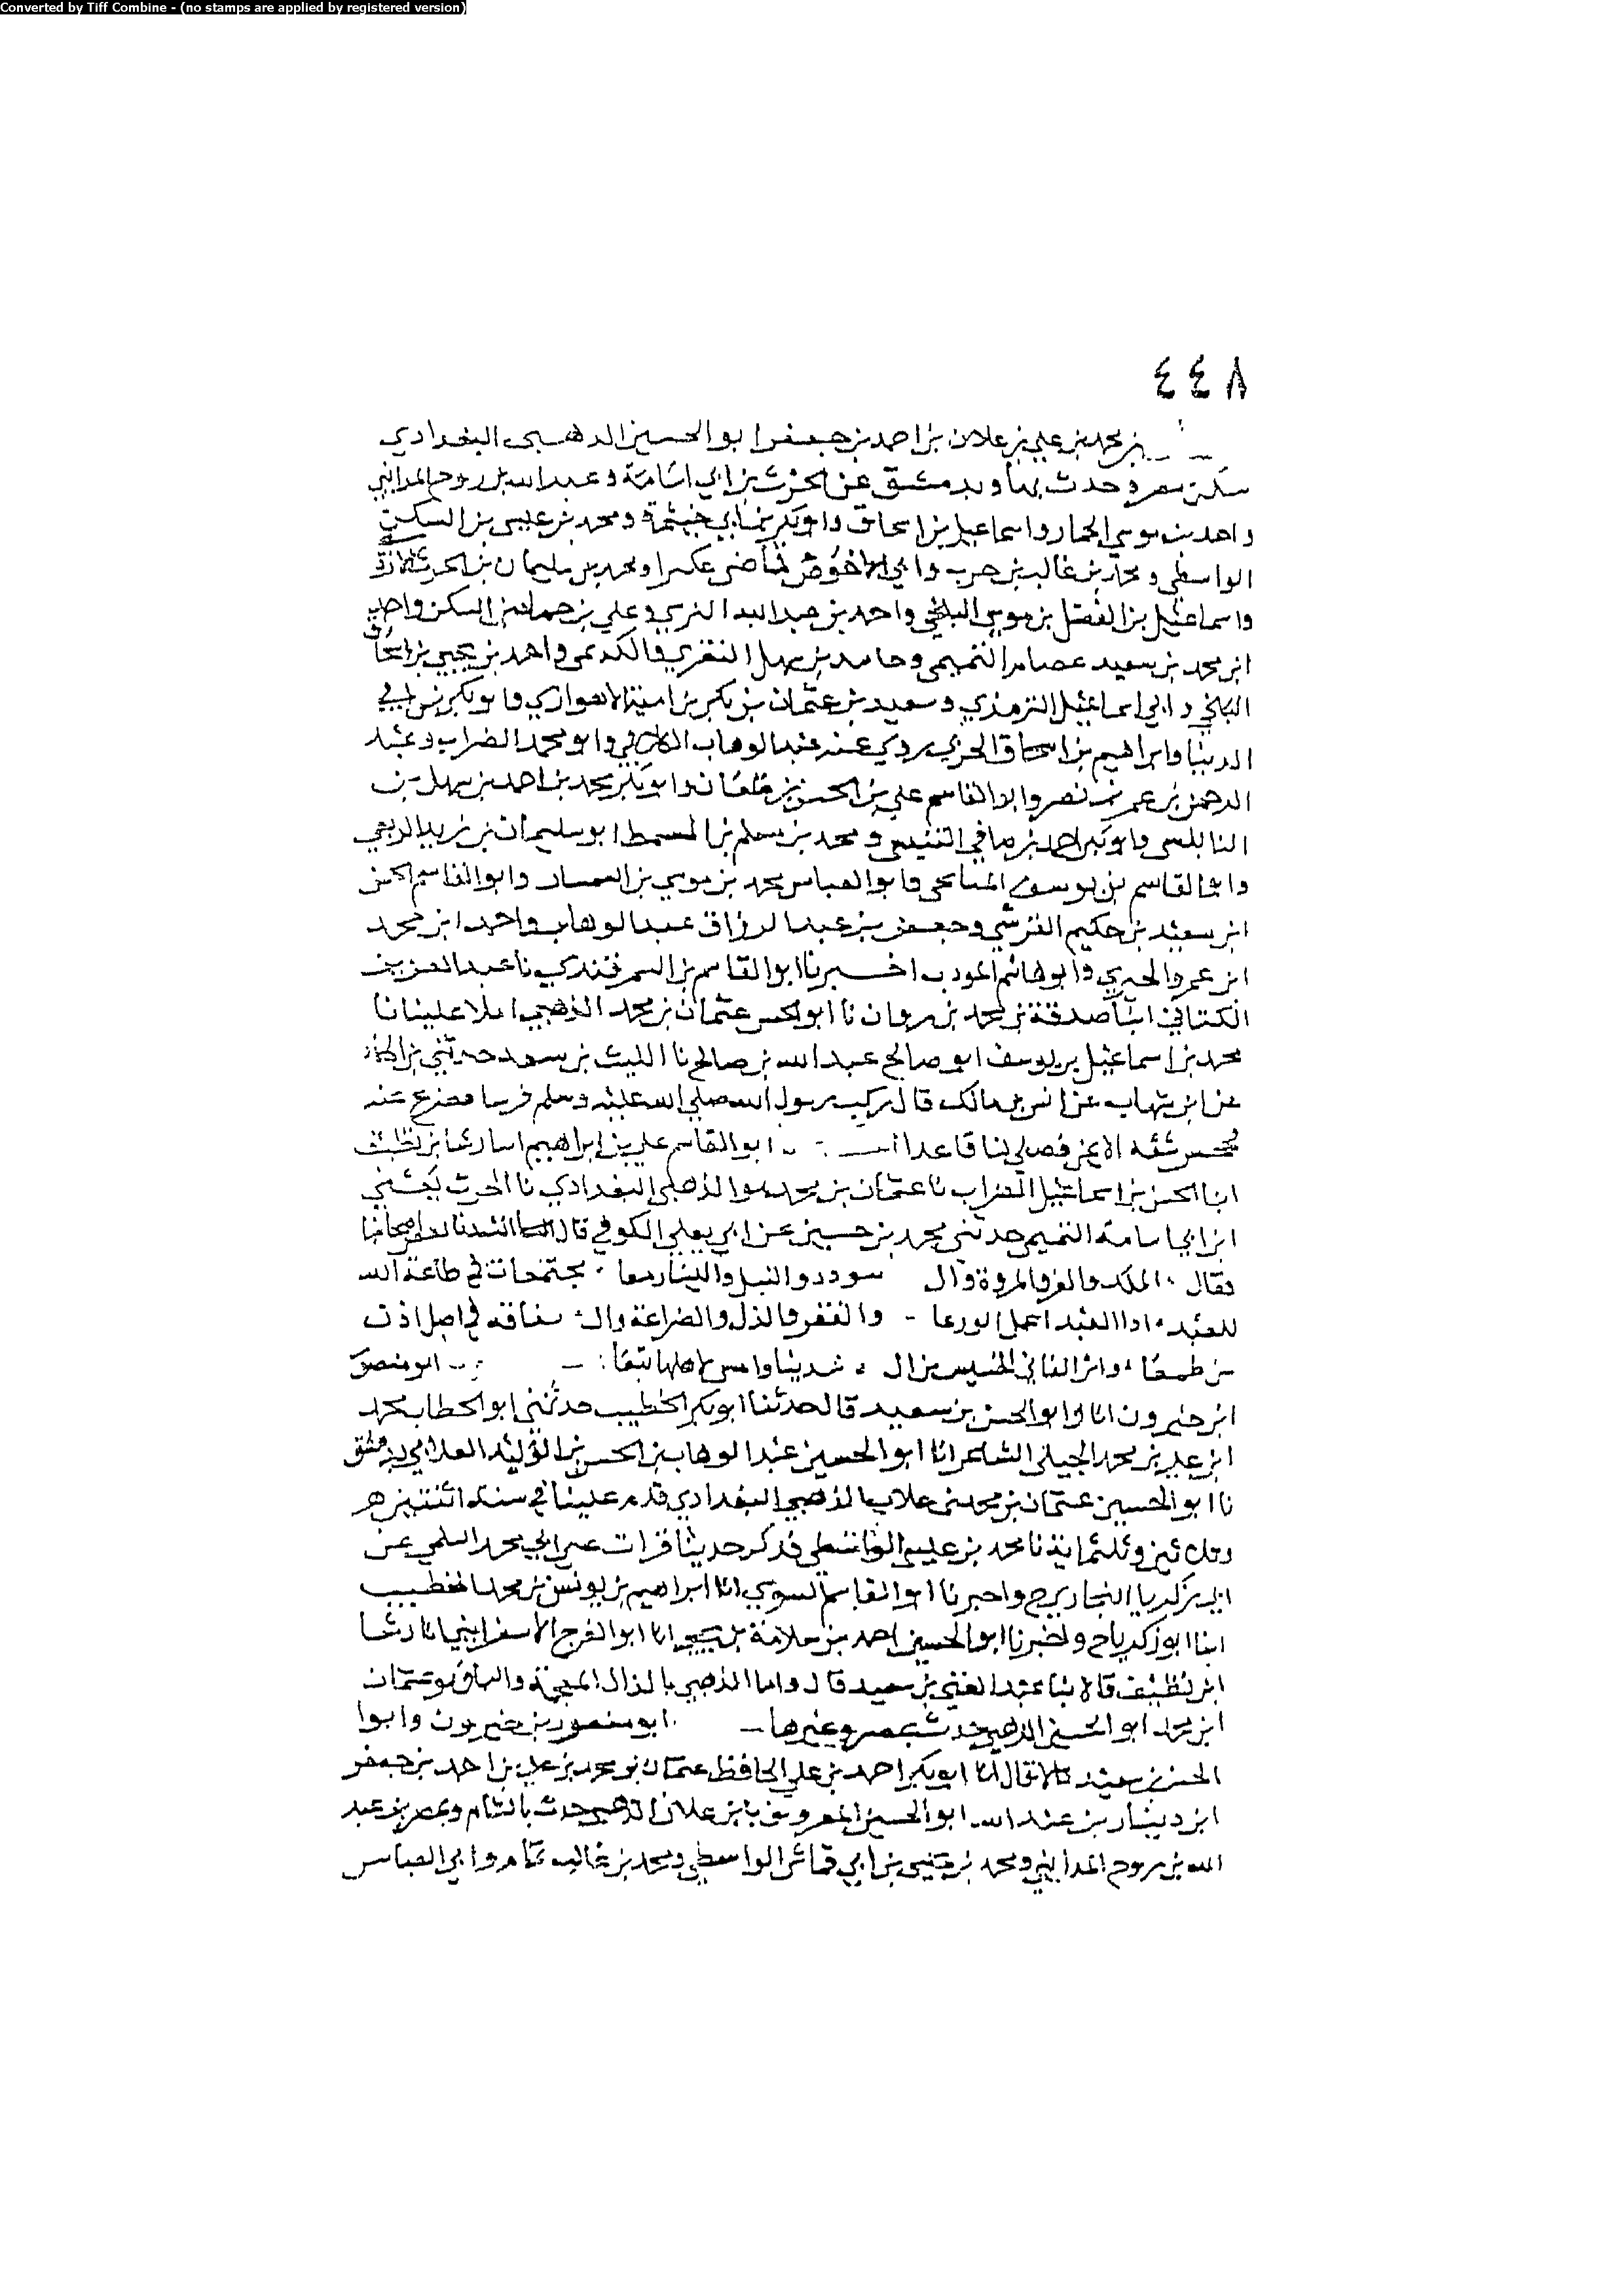 Converted by Tiff Combine - (no stamps are applied by registered version)
٤٤٨
بن محمد بن علي بن علان بن احمد بن جعفر ابو الحسين الذهبي البغدادي
سكن مصر وحدث بها وبدمشق عن الحرث بن ابي اسامة وعبد الله بن روح المدايني
واحمد بن موسي الحمار واسماعيل بن اسحاق وابو بكر بن ابي خيثمة ومحمد بن عيسى بن السكن
الواسطي ومحمد بن غالب بن حرب وابي الاحوص قاضي عكبرا ومحمد بن سليمان بن الحرث
واسماعيل بن الفضل بن موسي البلخي واحمد بن عبد الله النرسي وعلي بن حماد بن السكن واحمد
ابن محمد بن سعيد عصام التميمي وحامد بن سهل الثغري والكديمي واحمد بن يحيي بن اسحاق
البلخي وابي اسماعيل الترمذي وسعيد بن عثمان بن بكر بن امية الاهوازي وابو بكر بن ابي
الدنيا وابراهيم بن اسحاق الحربي روي عنه عبد الوهاب الكلابي وابو محمد الضراب وعبد
الرحمن بن عمر بن نصر وابو القاسم علي بن الحسن بن وابو بكر محمد بن احمد بن سهل بن
النابلسي وابو بكر احمد بن صافي التنيسي ومحمد بن مسلم بن السمط ابو سليمان بن زبر الربعي
وابو القاسم بن يوسف الميانجي وابو العباس محمد بن موسي بن السمسار وابو القاسم الحسن
ابن سعيد بن حكيم القرشي وجعفر بن عبد الرزاق عبد الوهاب واحمد ابن محمد
ابن عمرو الجيزي وابو هاشم المودب اخبرنا ابو القاسم بن السمرقندي نا عبد العزيز
الكتاني انبا صدقة بن محمد بن مروان نا ابو الحسن عثمان بن محمد الذهبي املا علينا نا
محمد بن اسماعيل بن يوسف ابو صالح عبد الله بن صالح نا الليث بن سعد حدثني بن
عن ابن شهاب عن انس بن مالك قال ركب رسول الله صلي الله عليه وسلم فرسا فصرع عنه
فجحش شقه الايمن فصلي لنا قاعدا ابو القاسم علي بن ابراهيم انا رشا بن نظيف
انا الحسن بن اسماعيل الضراب نا عثمان بن محمد الذهبي البغدادي نا الحرث
ابن ابي اسامة التميمي حدثني محمد بن حسين عن ابي يعلي الكوفي قال انشدنا بعض اصحابنا
فقال الملك والعز والمروة وال سودد والنبل واليسار معا مجتمعات في طاعة الله
للعبد اذا العبد اعمل الورعا والفقر والذل والضراعة وال فاقه في اصل اذن
من طمعا
ابو منصور
ابن خيرون انا وابو الحسن بن سعيد قال حدثنا ابو بكر الخطيب حدثني ابو الخطاب محمد
ابن علي بن محمد الجبلي الشاعر انا ابو الحسين عبد الوهاب بن الحسن بن الوليد الكلابي بدمشق
نا ابو الحسين عثمان بن محمد بن علان الذهبي البغدادي قدم علينا في سنة اثنتين
وثلاثين وثلثماية نا محمد بن عيسي الواسطي فذكر حديثا قرات علي ابي محمد السلمي عن
ابي زكريا البخاري ح واخبرنا ابو القاسم السوسي انا ابراهيم بن يونس بن محمد الخطيب
انبا ابو زكريا ح واخبرنا ابو الحسين احمد بن سلامة بن يحيي انا ابو الفرج الاسفرايني انا رشا
ابن نظيف قالا نا عبد الغني بن سعيد قال واما الذهبي بالذال المعجمة والهاء فهو عثمان
ابن محمد ابو الحسين الذهبي حدث بمصر وغيرها ابو منصور بن خيرون وابوا
الحسن بن سعيد قالا قال لنا ابو بكر احمد بن علي الحافظ عثمان بن محمد بن علي بن احمد بن جعفر
ابن دينار بن عبد الله ابو الحسين المعروف بابن علان الذهبي حدث بالشام وبمصر عن عبد
الله بن روح المدايني ومحمد بن عيسى بن ابي قماش الواسطي ومحمد بن غالب تمتام وابي العباس